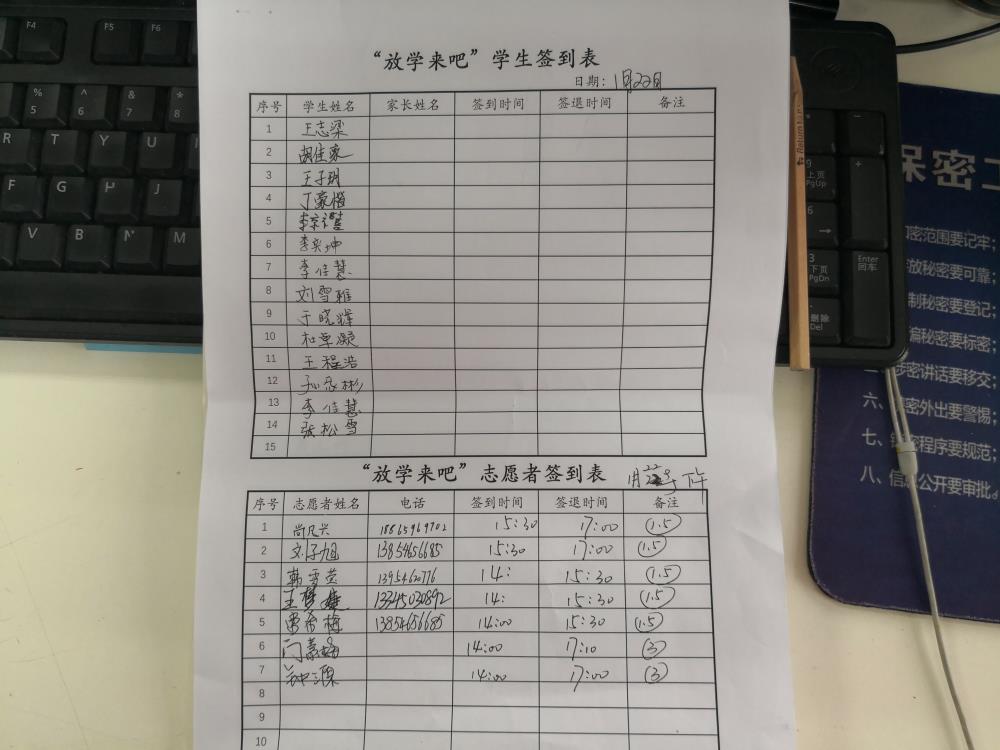 “放学来吧”学生签到表
日期：1月22日
序号 学生姓名 家长姓名 签到时间 签退时间 备注
1 王志梁
2 胡佳豪
3 王子玥
4 丁豪楷
5 李
6 李奕坤
7 李佳慧
8 刘雪雅
9 于晓辉
10 杜卓凝
11 王程浩
12 彬
13 李佳慧
14 张松雪
15
“放学来吧”志愿者签到表 下午
序号 志愿者姓名 电话 签到时间 签退时间 备注
1 尚凡兴 18865969702 15:30 17:00 1.5
2 刘子旭 13854656685 15:30 17:00 1.5
3 韩雪莹 1395462076 14: 15:30 1.5
4 王梦婕 13345030892 14: 15:30 1.5
5 梅 13854656685 14:00 15:30 1.5
6 14:00 17:10 3
7 钟源 14:00 17:00 3
8
9
10
F4 F5 F6
% 5 ^ 6 & 7 * 8
R T Y U
F G H J
V B N M
9 上页 PgUp
6 →
3 下页 PgDn
删除 Del
Enter 回车
- +
保密工
密范围要记牢；
放秘密要可靠；
制秘密要登记；
编秘密要标密；
涉密讲话要移交；
六、密外出要警惕；
七、密程序要规范；
八、信息公开要审批。